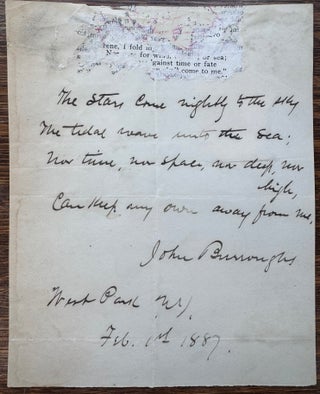 rene, I fold
Nor for wind, or sea;
'gainst time or fate
come to me."
The stars come nightly to the sky
The tidal wave unto the sea;
Nor time, nor space, nor deep, nor
high,
Can keep my own away from me,
John Burroughs
West Park N.Y.
Feb. 1st 1887.